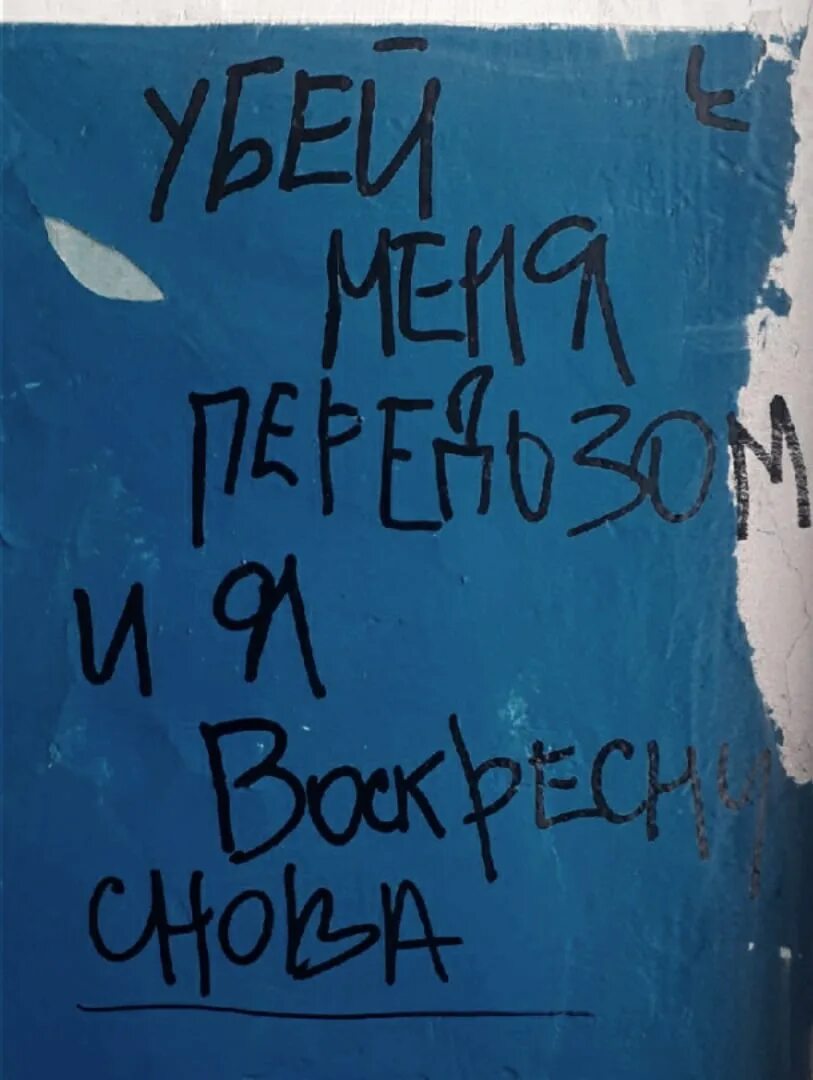 УБЕЙ
МЕНЯ
ПЕРЕДОЗОМ
И Я
ВОСКРЕСНУ
СНОВА